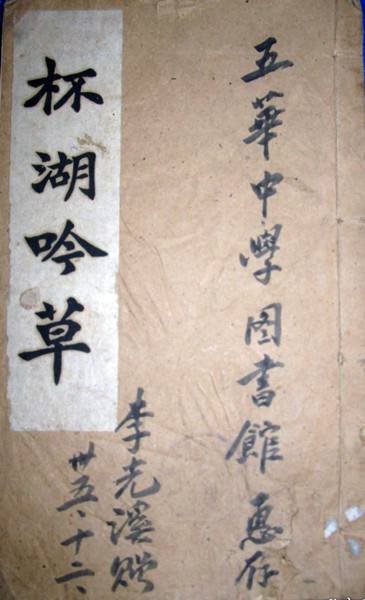 五華中學圖書館惠存
李光漢贈
卅五、十二、
杯湖吟草